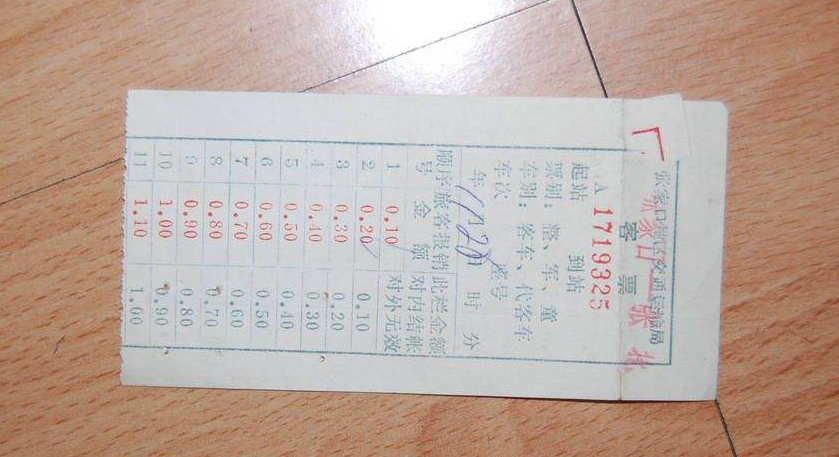 张家口地区交通运输局
客票
A 1719325
起站 到站
票别：整、军、童
车别：客车、代客车
车次 座号
年 11月20日 时 分
顺序号 旅客报销金额 此栏金额对内结帐对外无效
1 0.10
2 0.20 0.10
3 0.30 0.20
4 0.40 0.30
5 0.50 0.40
6 0.60 0.50
7 0.70 0.60
8 0.80 0.70
9 0.90 0.80
10 1.00 0.90
11 1.10 1.00